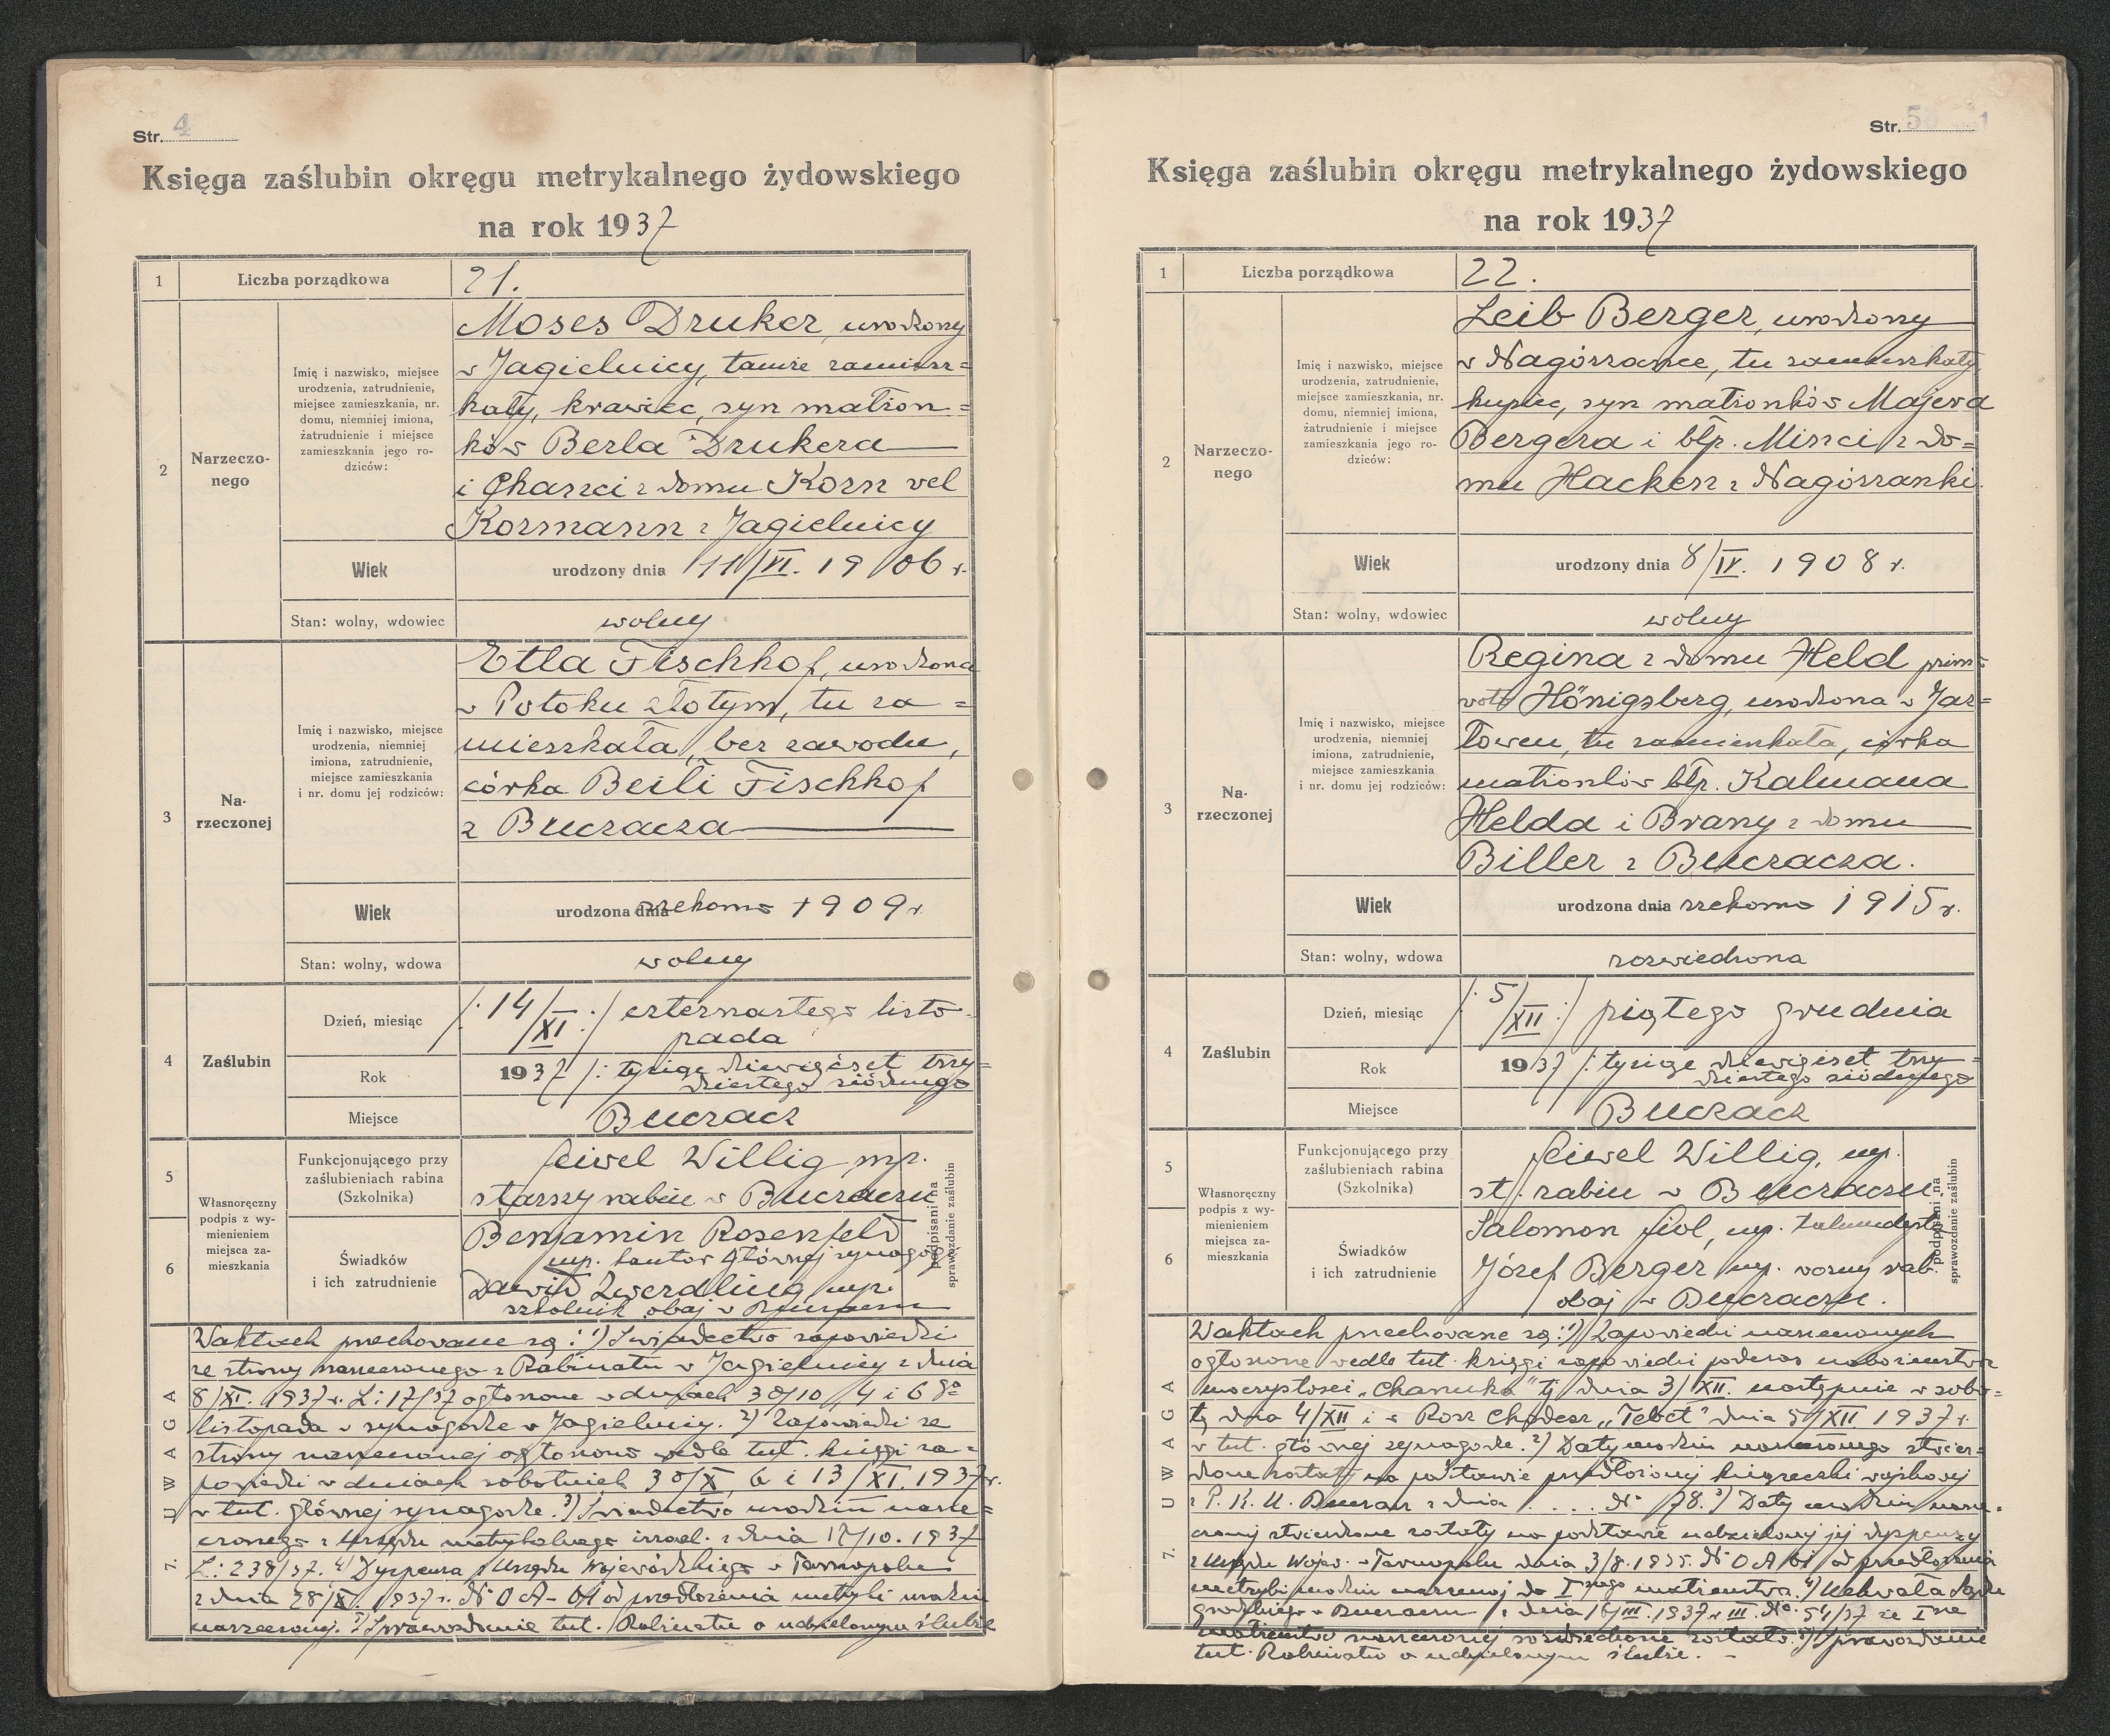 Str. 4
Księga zaślubin okręgu metrykalnego żydowskiego
na rok 1937
1
Liczba porządkowa
21.
2
Narzeczo-
nego
Imię i nazwisko, miejsce
urodzenia, zatrudnienie,
miejsce zamieszkania, nr.
domu, niemniej imiona,
zatrudnienie i miejsce
zamieszkania jego ro-
dziców:
Moses Druker, urodzony
w Jagielnicy, tamże zamiesz=
kały, krawiec, syn małżon=
ków Berla Drukera
i Chanzci z domu Korn vel
Kormann z Jagielnicy
Wiek
urodzony dnia 11/VI. 1906 r.
Stan: wolny, wdowiec
wolny
3
Na-
rzeczonej
Imię i nazwisko, miejsce
urodzenia, niemniej
imiona, zatrudnienie,
miejsce zamieszkania
i nr. domu jej rodziców:
Etla Fischhof, urodzona
w Potoku złotym, tu za=
mieszkała, bez zawodu,
córka Beili Fischhof
z Buczacza
Wiek
urodzona dnia rzekomo 1909 r.
Stan: wolny, wdowa
wolny
4
Zaślubin
Dzień, miesiąc
/: 14/XI :/ czternastego listo-
pada
Rok
1937 /: tysiąc dziewięćset trzy=
dziestego siódmego
Miejsce
Buczacz
5
6
Własnoręczny
podpis z wy-
mienieniem
miejsca za-
mieszkania
Funkcjonującego przy
zaślubieniach rabina
(Szkolnika)
Feiwel Willig mp.
starszy rabin w Buczaczu
Świadków
i ich zatrudnienie
Benjamin Rosenfeld
mp. kantor głównej synagogi
Dawid Zwerdling mp.
szkolnik obaj w Buczaczu
podpisani na
sprawozdanie zaślubin
7. UWAGA
W aktach przechowane są: 1) Świadectwo zapowiedzi
ze strony narzeczonego z Rabinatu w Jagielnicy z dnia
8/XI. 1937 r. L: 17/37 ogłoszone w dniach 30/10, 4 i 6go
listopada w synagodze w Jagielnicy. 2) Zapowiedzi ze
strony narzeczonej ogłoszono wedle tut. księgi za=
powiedzi w dniach sobotnich 30/X, 6 i 13/XI. 1937 r.
w tut. głównej synagodze. 3) Świadectwo urodzin narze=
czonego z Urzędu metrykalnego izrael. z dnia 17/10. 1937
L: 238/37. 4) Dyspenza Urzędu Wojewódzkiego w Tarnopolu
z dnia 28/X. 1937 r. № OA- od przedłożenia metryki urodzin
narzeczonej. 5) Sprawozdanie tut. Rabinatu o udzielonym ślubie
Str. 5
Księga zaślubin okręgu metrykalnego żydowskiego
na rok 1937
1
Liczba porządkowa
22.
2
Narzeczo-
nego
Imię i nazwisko, miejsce
urodzenia, zatrudnienie,
miejsce zamieszkania, nr.
domu, niemniej imiona,
zatrudnienie i miejsce
zamieszkania jego ro-
dziców:
Leib Berger, urodzony
w Nagórzance, tu zamieszkały
kupiec, syn małżonków Majera
Bergera i błp. Minci z do=
mu Hacken z Nagórzanki.
Wiek
urodzony dnia 8/IV. 1908 r.
Stan: wolny, wdowiec
wolny
3
Na-
rzeczonej
Imię i nazwisko, miejsce
urodzenia, niemniej
imiona, zatrudnienie,
miejsce zamieszkania
i nr. domu jej rodziców:
Regina z domu Held primo
voto Hönigsberg, urodzona w Jaz=
łowcu, tu zamieszkała, córka
małżonków błp. Kalmana
Helda i Brany z domu
Biller z Buczacza.
Wiek
urodzona dnia rzekomo 1915 r.
Stan: wolny, wdowa
rozwiedziona
4
Zaślubin
Dzień, miesiąc
/: 5/XII :/ piątego grudnia
Rok
1937 /: tysiąc dziewięćset trzy=
dziestego siódmego
Miejsce
Buczacz
5
6
Własnoręczny
podpis z wy-
mienieniem
miejsca za-
mieszkania
Funkcjonującego przy
zaślubieniach rabina
(Szkolnika)
Feiwel Willig, mp.
st. rabin w Buczaczu
Świadków
i ich zatrudnienie
Salomon Fiol, mp. talmudysta
Józef Berger mp. woźny rab.
obaj w Buczaczu.
podpisani na
sprawozdanie zaślubin
7. UWAGA
W aktach przechowane są: 1) Zapowiedzi narzeczonych
ogłoszone wedle tut. księgi zapowiedzi podczas nabożeństwa
uroczystości „Chanuka" tj dnia 3/XII. następnie w sobo=
tę dnia 4/XII i w Rosz Chodesz „Tebet" dnia 5/XII 1937 r.
w tut. głównej synagodze. 2) Daty urodzin narzeczonego stwier=
dzone zostały na podstawie przedłożonej książeczki wojskowej
z P. K. U. Buczacz z dnia .... № 178. 3) Daty urodzin narze=
czonej stwierdzone zostały na podstawie udzielonej jej dyspenzy
z Urzędu Wojew. w Tarnopolu dnia 3/8. 1935. № OA od przedłożenia
metryki urodzin narzeczonej do I małżeństwa. 4) Uchwała Sądu
grodzkiego w Buczaczu z dnia 16/III. 1937 r. III. Nc. 54/37 że I ne
małżeństwo narzeczonej rozwiedzione zostało. 5) Sprawozdanie
tut. Rabinatu o udzielonym ślubie. -